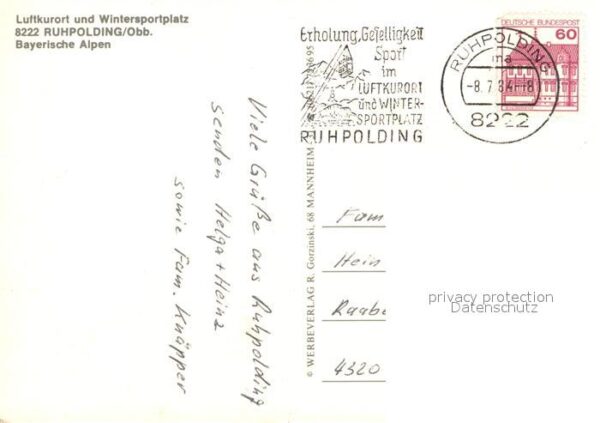 Luftkurort und Wintersportplatz
8222 RUHPOLDING/Obb.
Bayerische Alpen
Erholung, Geselligkeit
Sport
im
LUFTKURORT
und WINTER-
SPORTPLATZ
RUHPOLDING
RUHPOLDING
-8.7.84-18
8222
DEUTSCHE BUNDESPOST
60
Viele Grüße aus Ruhpolding
senden Helga + Heinz
sowie Fam. Knäpper
© WERBEVERLAG R. Gorzinski, 68 MANNHEIM
Fam
Hein
Raabe
4320
privacy protection
Datenschutz